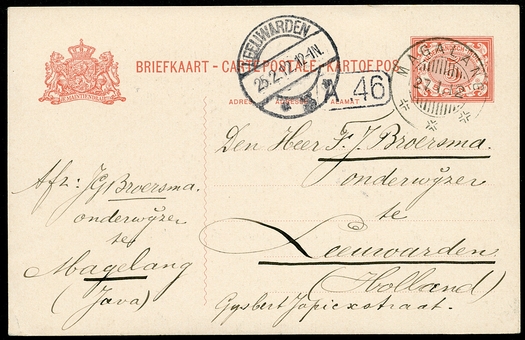 BRIEFKAART - CARTE POSTALE - KARTOE POS
ADRES ADRESSE ALAMAT
LEEUWARDEN
25.2.12.12-1N.
46
MAGELANG
Den Heer F. J. Broersma.
onderwijzer
te
Leeuwarden
(Holland)
Gysbert Japicxstraat.
Afz: JG Broersma.
onderwijzer
te
Magelang
(Java)